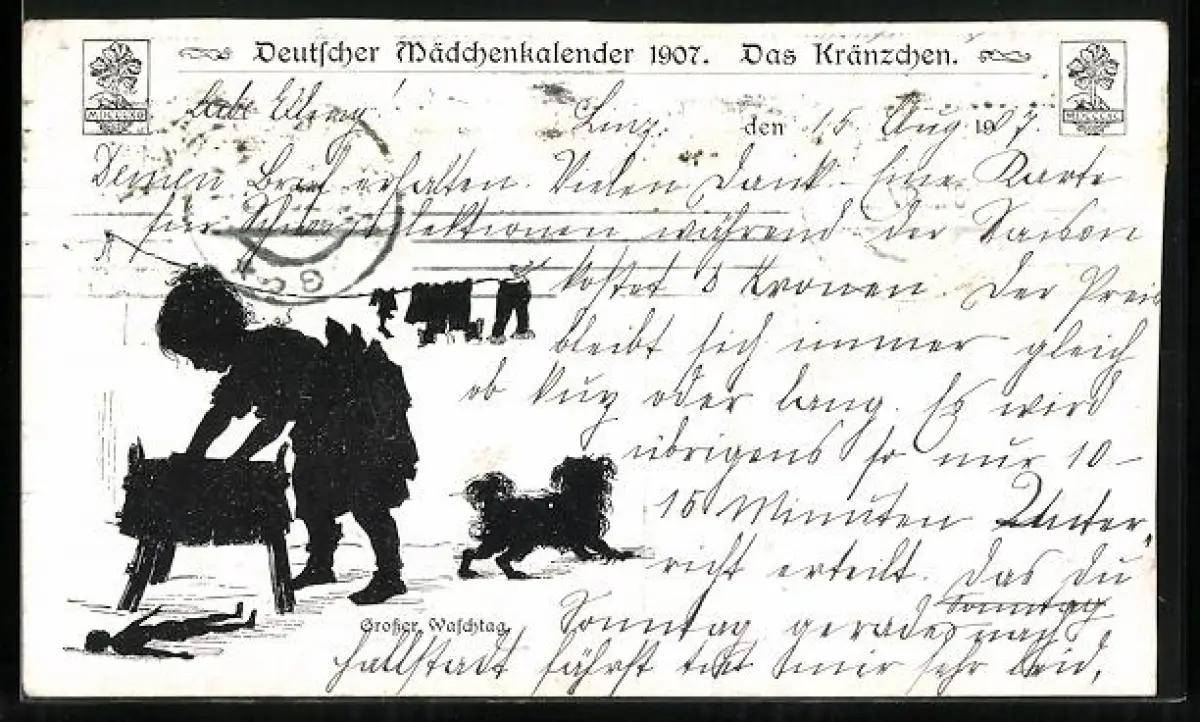 Deutscher Mädchenkalender 1907. Das Kränzchen.
Liebe
Linz. den 15. Aug 1907.
Deinen Brief erhalten. Vielen Dank. Eine Karte
für Schwimmlektionen während der Saison
kostet 8 Kronen. Der Preis
bleibt sich immer gleich
ob kurz oder lang. Es wird
übrigens so nur 10-
15 Minuten Unter-
richt erteilt. Das Du
Sonntag gerade nach
Hallstadt fährst tut mir sehr leid,
Großer Waschtag.